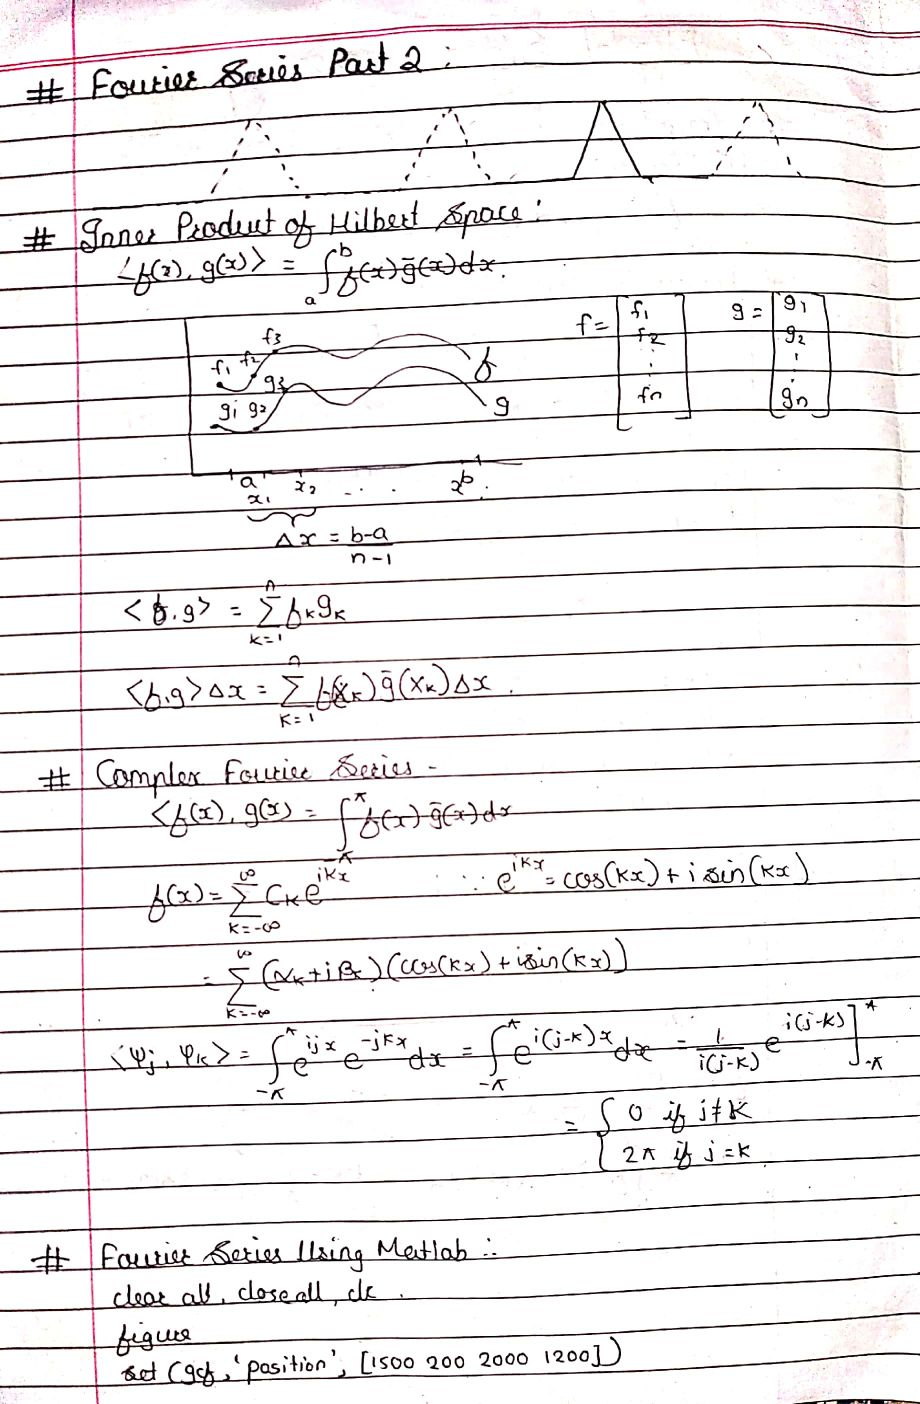 # Fourier Series Part 2 :
# Inner Product of Hilbert Space :
<f(x), g(x)> = ∫_a^b f(x) ḡ(x) dx.
f = [f1 f2 ⋮ fn] g = [g1 g2 ⋮ gn]
f1 f2 f3 f
g1 g2 g3 g
a b
x1 x2 . . .
Δx = b-a / n-1
<f.g> = Σ_{k=1}^n fk gk
<f.g> Δx = Σ_{k=1}^n f(xk) ḡ(xk) Δx .
# Complex Fourier Series -
<f(x), g(x) = ∫_{-π}^π f(x) ḡ(x) dx
f(x) = Σ_{k=-∞}^∞ Ck e^{ikx} ∵ e^{ikx} = cos(kx) + i sin(kx)
= Σ_{k=-∞}^∞ (αk + iβk) (cos(kx) + i sin(kx))
<Ψj, Ψk> = ∫_{-π}^π e^{ijx} e^{-jkx} dx = ∫_{-π}^π e^{i(j-k)x} dx = 1/i(j-k) e^{i(j-k)} ]_{-π}^π
= { 0 if j≠k
2π if j = k
# Fourier Series Using Matlab :-
clear all, close all, clc .
figure
set (gcf, 'position', [1500 200 2000 1200])